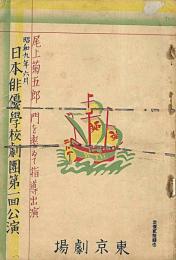 尾上菊五郎一門を挙げて指導出演
昭和九年六月
日本俳優學校劇團第一回公演
東京劇場